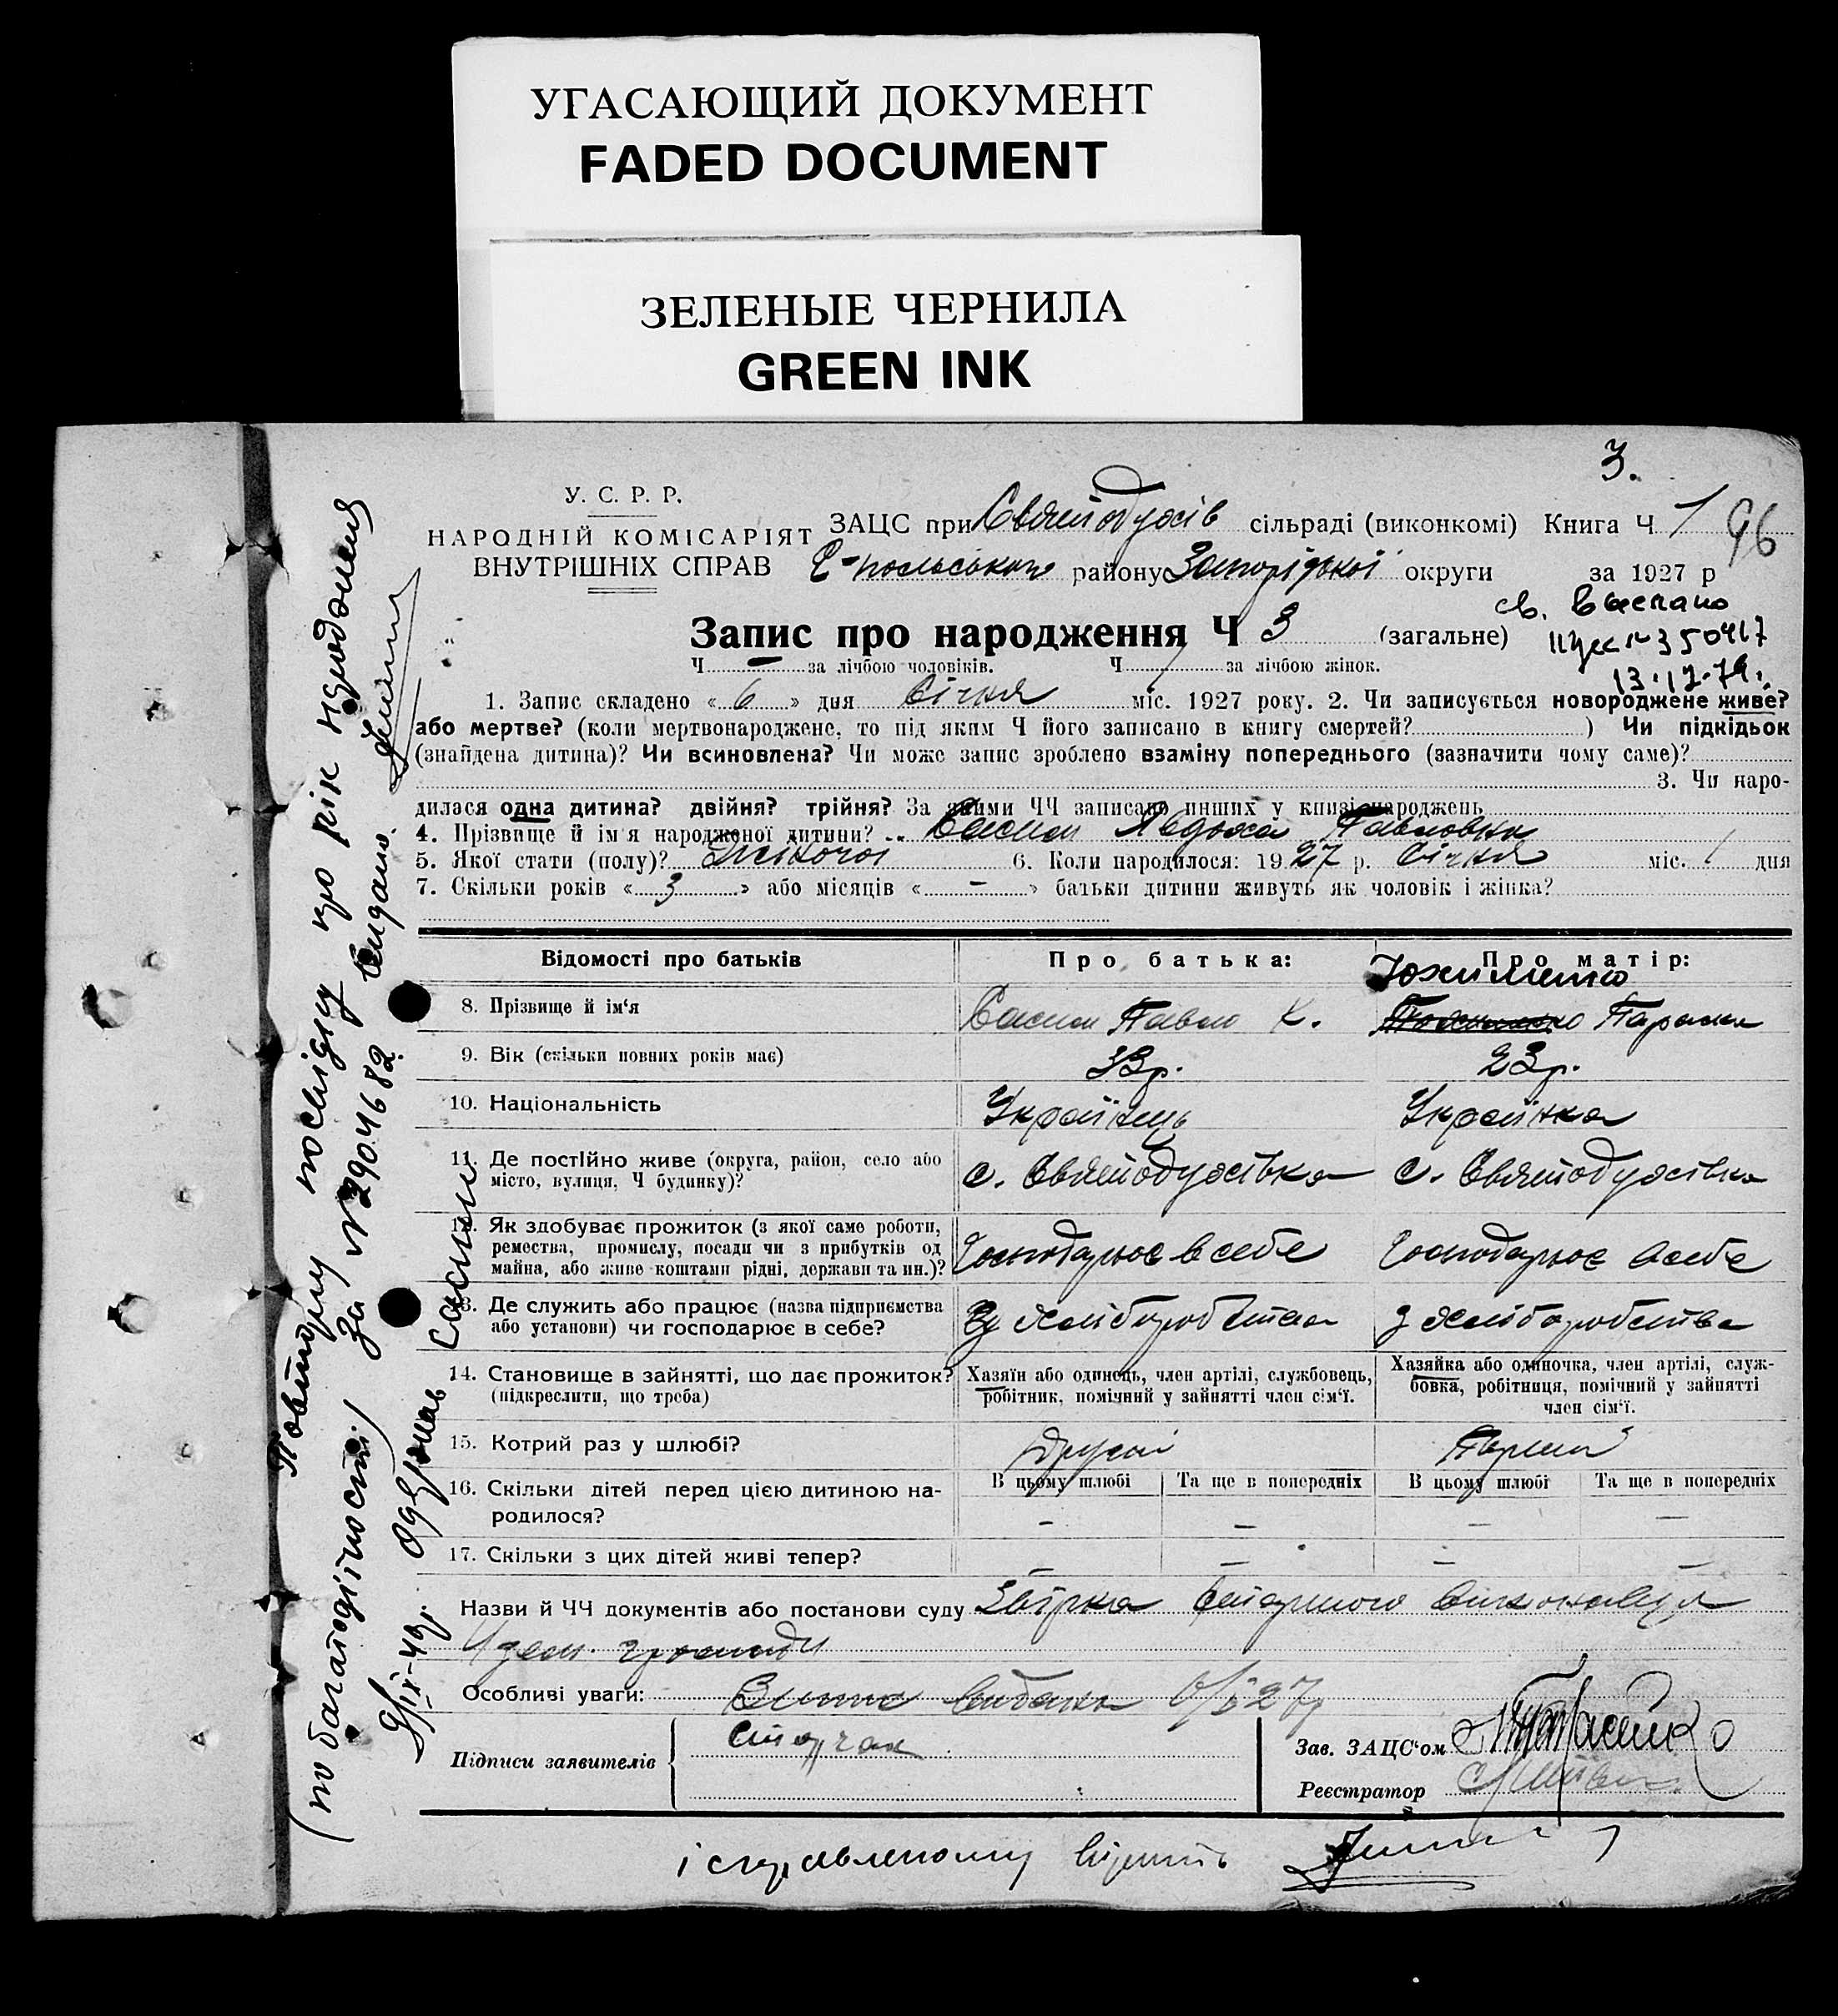 УГАСАЮЩИЙ ДОКУМЕНТ
FADED DOCUMENT
ЗЕЛЕНЫЕ ЧЕРНИЛА
GREEN INK
3.
У. С. Р. Р.
НАРОДНІЙ КОМІСАРІЯТ
ВНУТРІШНІХ СПРАВ
ЗАЦС при Святодухів сільраді (виконкомі) Книга Ч 1 96
польського району Запорізької округи за 1927 р
св. выслано
350417
Запис про народження Ч 3 (загальне)
13.12.79.
Ч — за лічбою чоловіків. Ч 1 за лічбою жінок.
1. Запис складено « 6 » дня Січня міс. 1927 року. 2. Чи записується новороджене живе?
або мертве? (коли мертвонароджене, то під яким Ч його записано в книгу смертей? ) Чи підкідьок
(знайдена дитина)? Чи всиновлена? Чи може запис зроблено взаміну попереднього (зазначити чому саме)?
3. Чи наро-
дилася одна дитина? двійня? трійня? За якими ЧЧ записано инших у книзі народжень
4. Прізвище й ім'я народженої дитини? Саєнко Явдоха Павловна
5. Якої стати (полу)? Жіночої 6. Коли народилося: 1927 р. Січня міс. 1 дня
7. Скільки років « 3 » або місяців « - » батьки дитини живуть як чоловік і жінка?
Відомості про батьків Про батька: Про матір:
Юхименко
8. Прізвище й ім'я Павло К. Параска
9. Вік (скільки повних років має) 33р. 23р.
10. Національність Українець Українка
11. Де постійно живе (округа, район, село або
місто, вулиця, Ч будинку)? с. Святодухівка с. Святодухівка
12. Як здобуває прожиток (з якої саме роботи,
ремества, промислу, посади чи з прибутків од
майна, або живе коштами рідні, держави та ин.)? Господарює в себе Господарює в себе
13. Де служить або працює (назва підприємства
або установи) чи господарює в себе? З хліборобства з хліборобства
14. Становище в зайнятті, що дає прожиток?
(підкреслити, що треба)
Хазяїн або одинець, член артілі, службовець,
робітник, помічний у зайнятті член сім'ї.
Хазяйка або одиночка, член артілі, служ-
бовка, робітниця, помічний у зайнятті
член сім'ї.
15. Котрий раз у шлюбі? Другой Первий
16. Скільки дітей перед цією дитиною на-
родилося?
В цьому шлюбі Та ще в попередніх В цьому шлюбі Та ще в попередніх
- - - -
17. Скільки з цих дітей живі тепер? - - - -
Назви й ЧЧ документів або постанови суду Звірка Старшого виконавця
громади
Особливі уваги: Випис видано 6/I 27р
Підписи заявителів
Зав. ЗАЦС'ом
Реєстратор
і справленому вірить
Повторну посвідку про рік народження
(по багатодітности) за №2904682 видано.
9/IX-49р. Одержав Саєнко